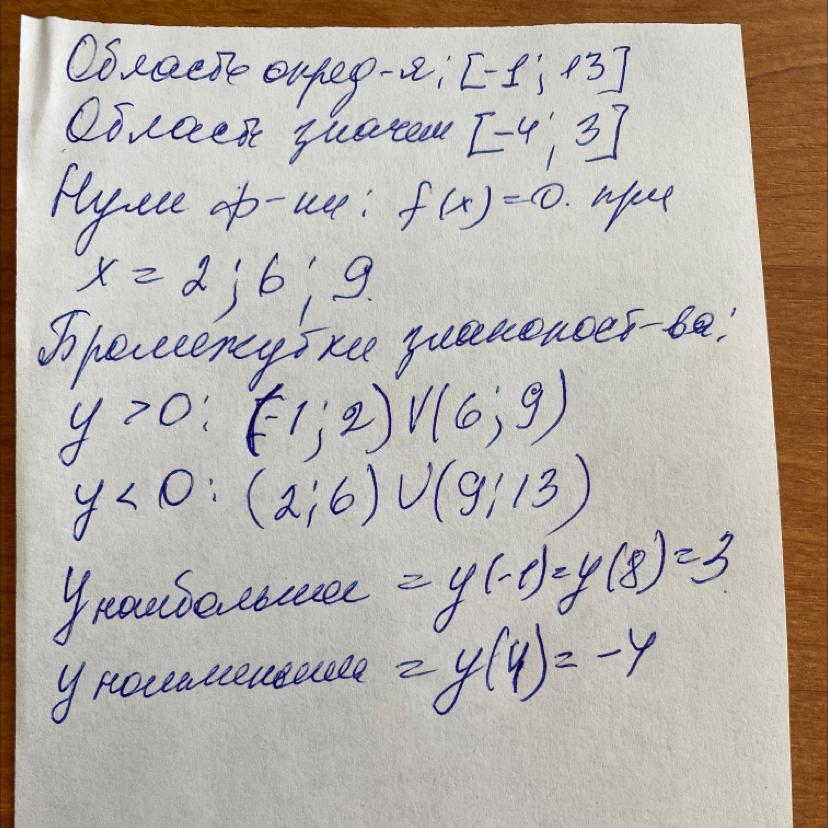 Область опред-я: [-1; 13]
Область значен [-4; 3]
Нули ф-ии: f(x)=0. при
x = 2; 6; 9.
Промежутки знакопост-ва:
y > 0: [-1; 2) ∪ (6; 9)
y < 0: (2; 6) ∪ (9; 13)
y наибольшее = y(-1) = y(8) = 3
y наименьшее = y(4) = -4